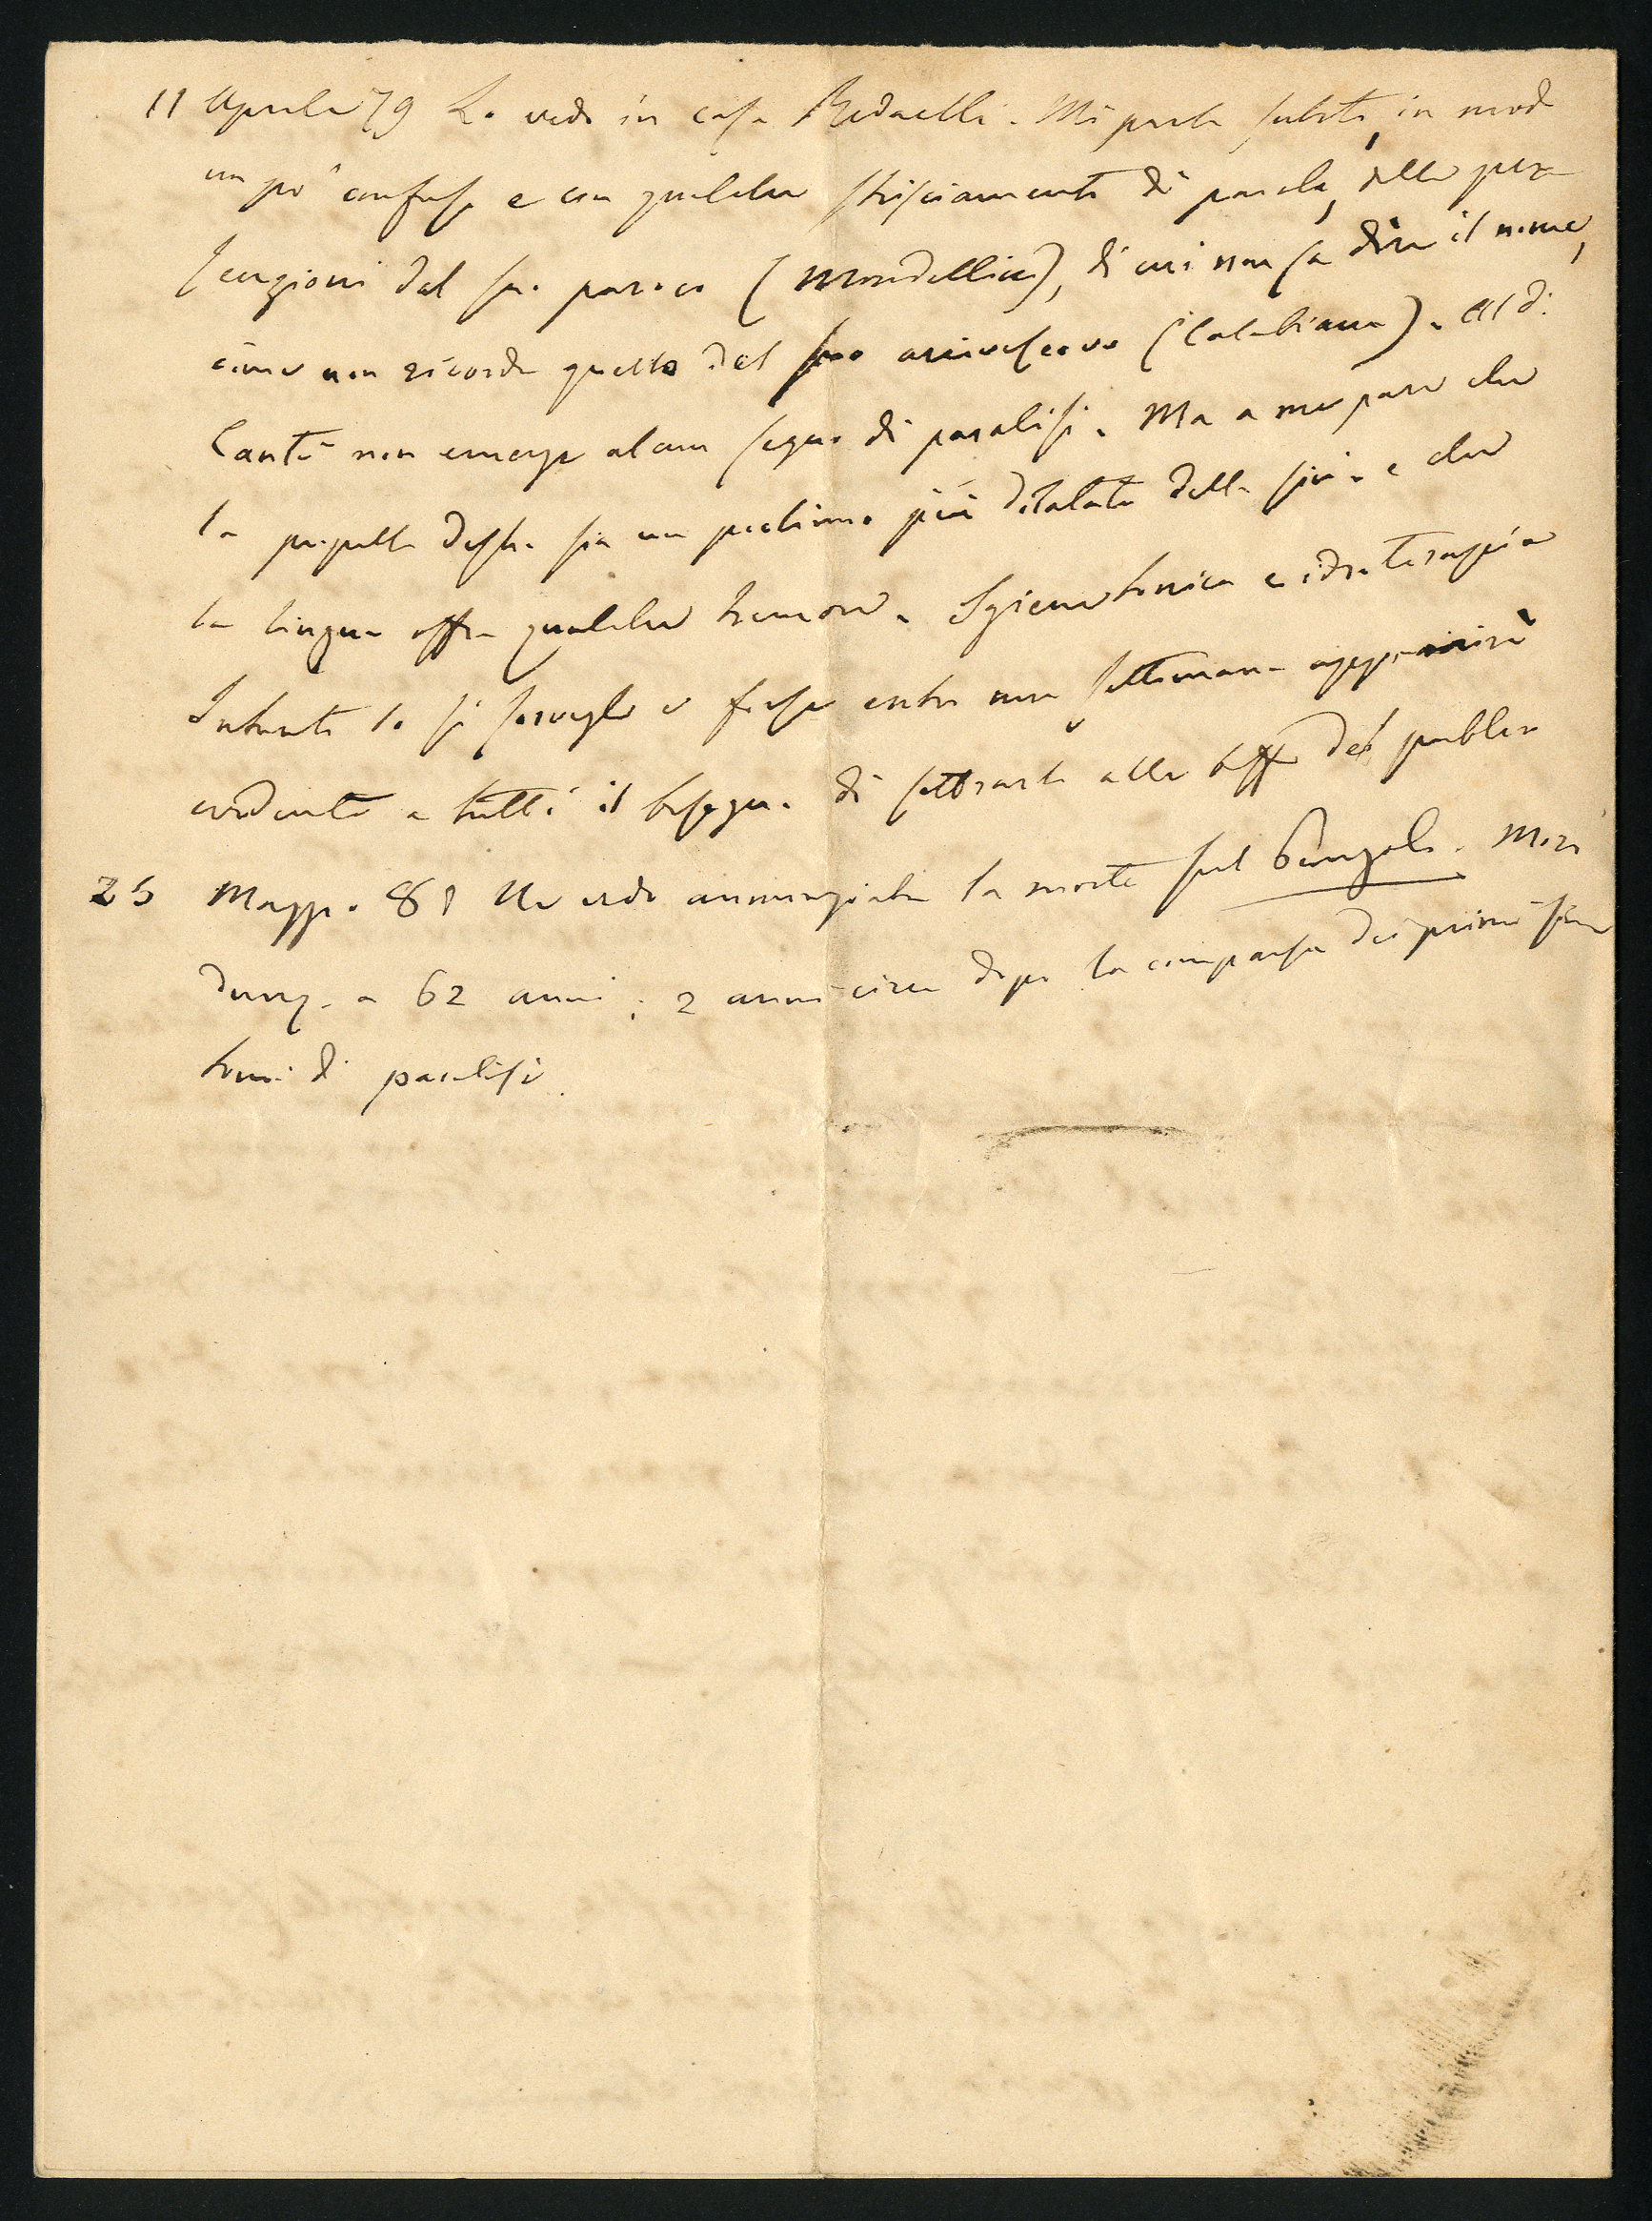 11 Aprile 79 Lo vedo in casa Redaelli. Mi parla subito, in modo
un po' confuso e con qualche strisciamento di parola, delle perse
cuzioni del suo paroco (Mondellici), di cui non sa dire il nome,
come non ricorda quello del suo arcivescovo (Calabiana). Al Dr
Cantù non emerge alcun segno di paralisi. Ma a me pare che
la pupilla destra sia un pochino più dilatata della sin. e che
la lingua offra qualche tremore. Igiene tonica e idroterapia
Intanto lo si sorvegli e forse entro una settimana apparirà
evidente a tutti il bisogno di sottrarlo alle beffe del publico
25 Maggio 81 Ne vedo annunziata la morte sul Pungolo. Morì
dunq. a 62 anni; 2 anni circa dopo la comparsa dei primi sin
tomi di paralisi.